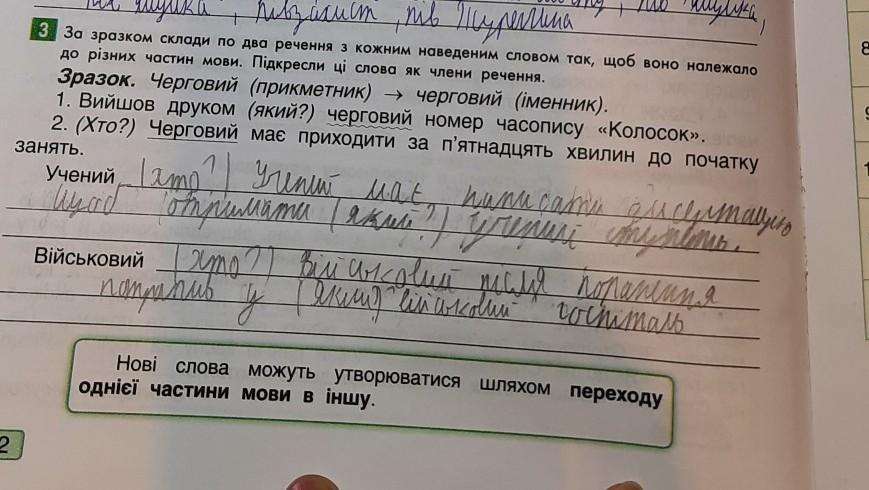 ящика, півзахист, пів Журенина
3 За зразком склади по два речення з кожним наведеним словом так, щоб воно належало
до різних частин мови. Підкресли ці слова як члени речення.
Зразок. Черговий (прикметник) → черговий (іменник).
1. Вийшов друком (який?) черговий номер часопису «Колосок».
2. (Хто?) Черговий має приходити за п'ятнадцять хвилин до початку
занять.
Учений (хто?) Учений має написати дисертацію
щоб отримати (який?) учений ступень.
Військовий (хто?) Військовий після поранення
потрапив у (який) військовий госпіталь
Нові слова можуть утворюватися шляхом переходу
однієї частини мови в іншу.
2